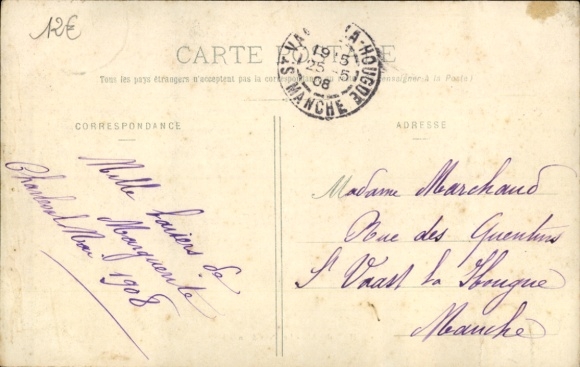 12€
CARTE POSTALE
Tous les pays étrangers n'acceptent pas la correspondance au (se renseigner à la Poste)
ST VAAST-LA-HOUGUE
19 15
25 -5
08
MANCHE
CORRESPONDANCE
ADRESSE
Mille baisers de
Marguerite
Mai 1908
Madame Marchand
Rue des Quentins
St Vaast la Hougue
Manche